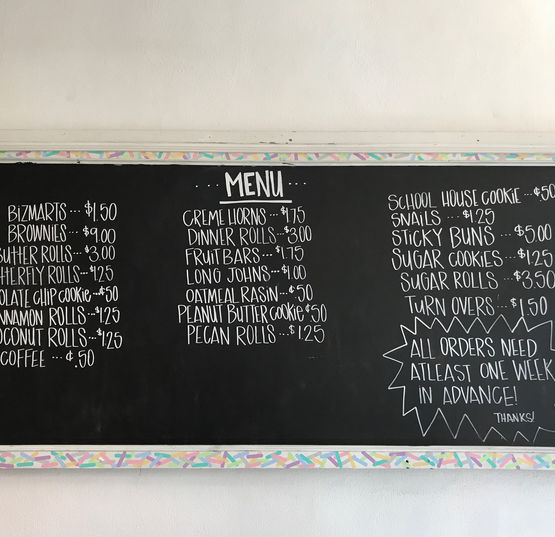 MENU
BIZMARTS... $1.50
BROWNIES... $9.00
BUTTER ROLLS... $3.00
TTERFLY ROLLS... $1.25
OLATE CHIP COOKIE... ¢50
NNAMON ROLLS... $1.25
OCONUT ROLLS... $1.25
COFFEE ... ¢.50
CREME HORNS... $1.75
DINNER ROLLS... $3.00
FRUIT BARS... $1.75
LONG JOHNS... $1.00
OATMEAL RASIN... ¢.50
PEANUT BUTTER COOKIE ¢50
PECAN ROLLS... $1.25
SCHOOL HOUSE COOKIE... ¢50
SNAILS ... $1.25
STICKY BUNS ... $5.00
SUGAR COOKIES... $1.25
SUGAR ROLLS ... $3.50
TURN OVERS... $1.50
ALL ORDERS NEED
ATLEAST ONE WEEK
IN ADVANCE!
THANKS!